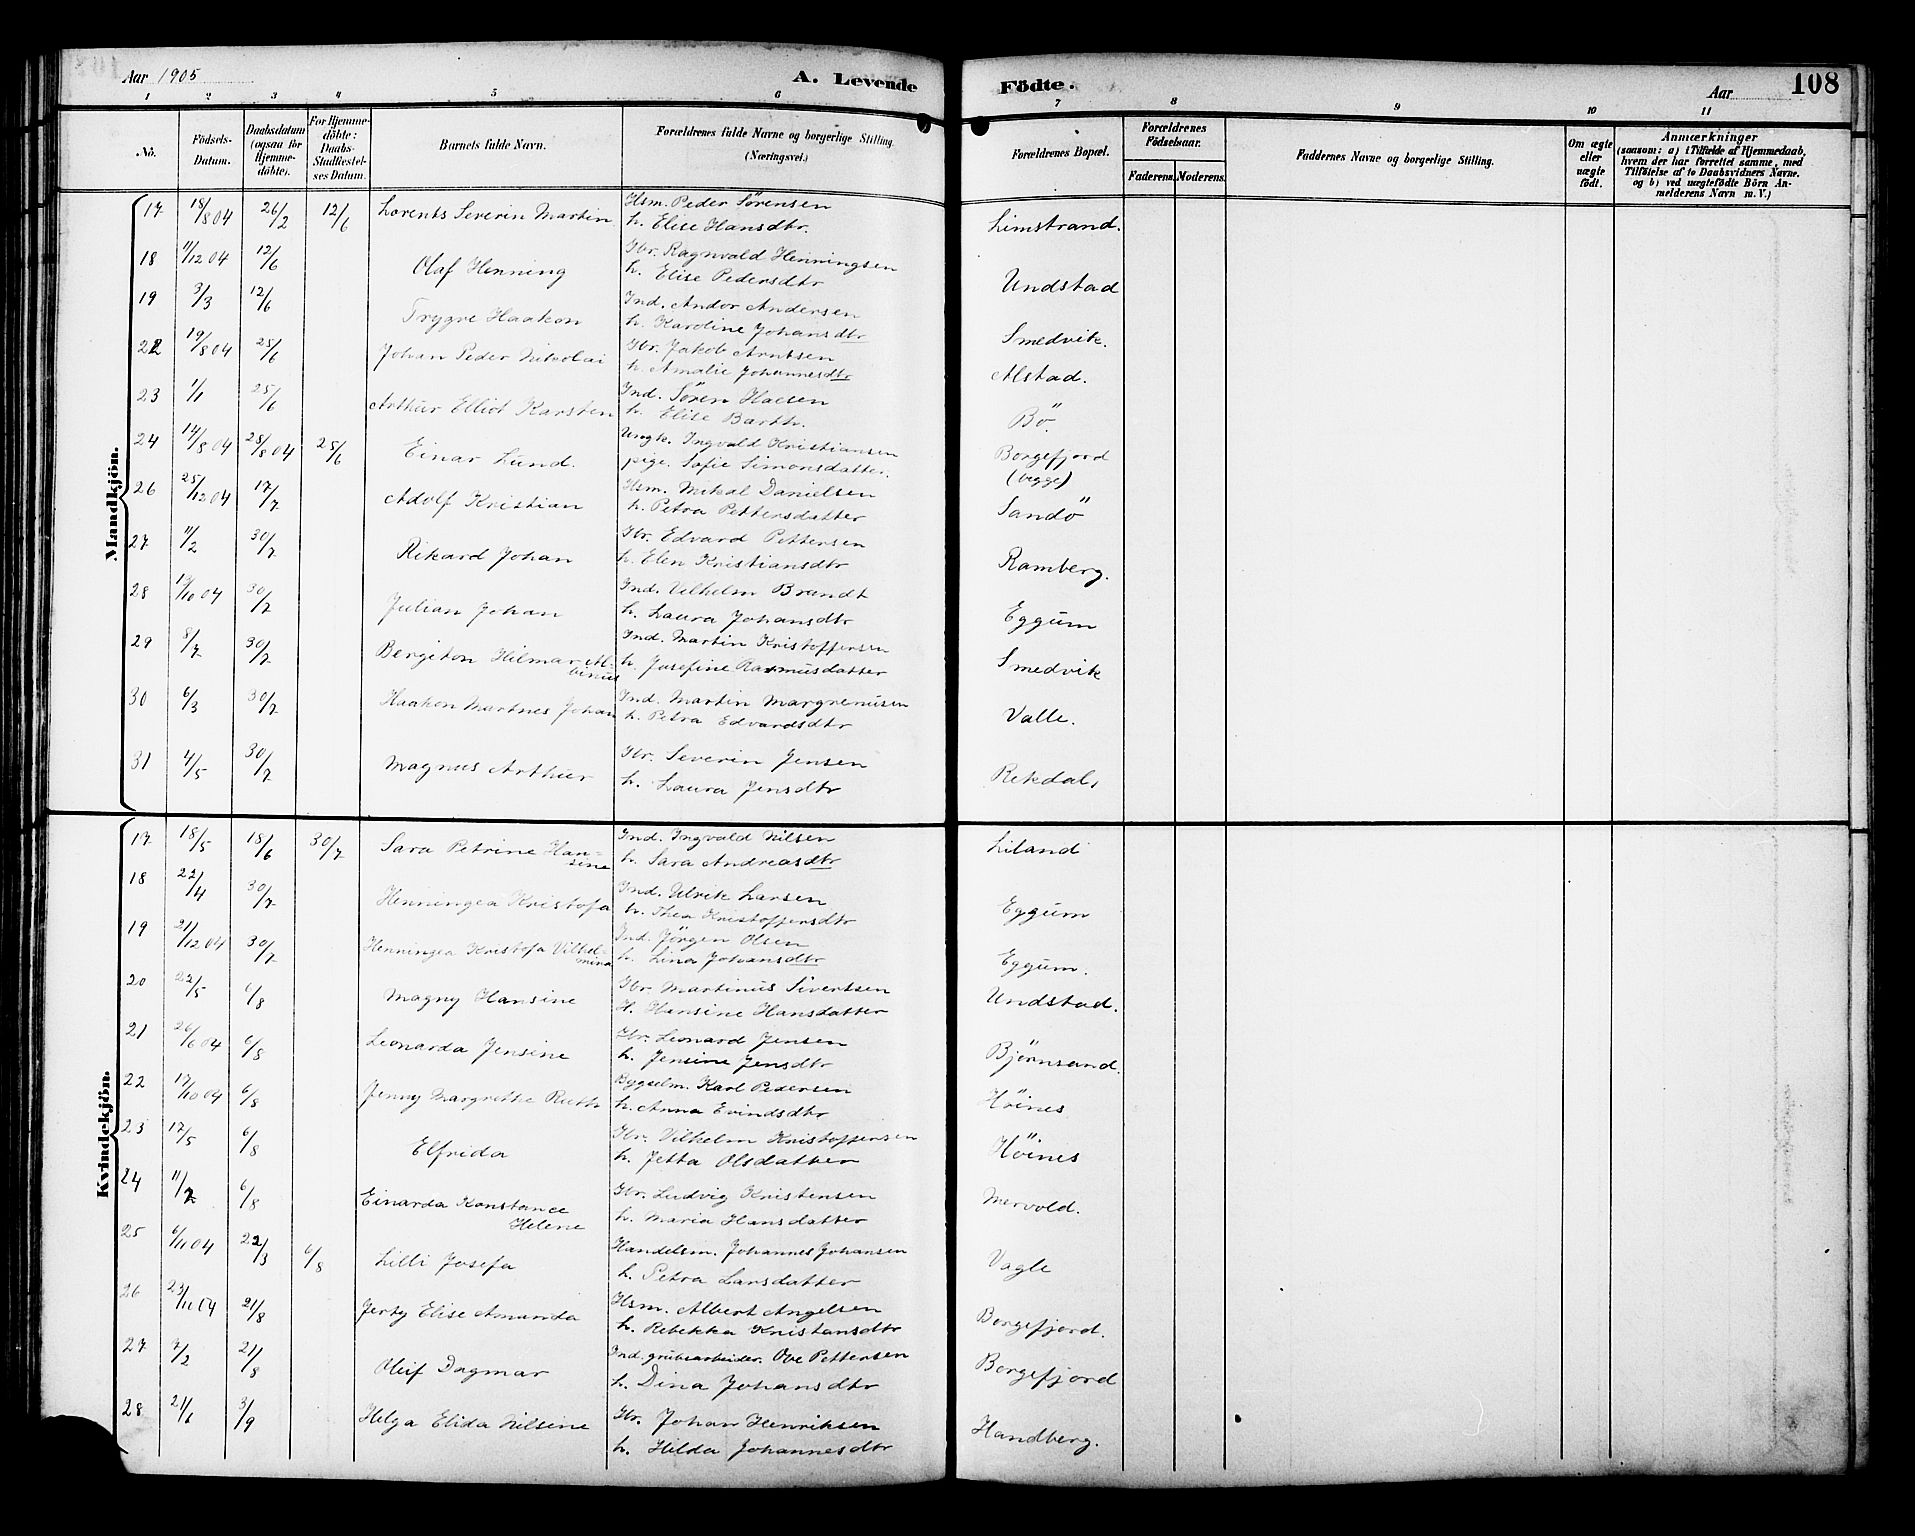 Aar 1905
A. Levende Födte.
Aar
108
1 2 3 4 5 6 7 8 9 10 11
No.
Födsels-Datum.
Daabsdatum (ogsaa for Hjemmedöbte).
For Hjemmedöbte: Daabs-Stadfæstelses Datum.
Barnets fulde Navn.
Forældrenes fulde Navne og borgerlige Stilling. (Næringsvei.)
Forældrenes Bopæl.
Forældrenes Födselsaar.
Faderens. Moderens.
Faddernes Navne og borgerlige Stilling.
Om ægte eller uægte födt.
Anmærkninger
(saasom: a) i Tilfælde af Hjemmedaab, hvem der har forrettet samme, med Tilföielse af to Daabsvidners Navne. og b) ved uægtefödte Börn Anmelderens Navn m. V.)
Mandkjön.
17 18/8 04 26/2 12/6 Lorents Severin Martin Hsm. Peder Sörensen Limstrand.
h. Elise Hansdtr.
18 11/12 04 12/6 Olaf Henning Gbr. Ragnvald Henningsen Undstad
h. Elise Pedersdtr
19 3/3 12/6 Trygve Haakon Ind. Andor Andersen Smedvik.
h. Karoline Johansdtr
22 19/8 04 25/6 Johan Peder Nikolai Gbr. Jakob Arntsen Alstad.
h. Amalie Johannesdtr
23 1/1 25/6 Arthur Elliot Karsten Ind. Sören Haesen Bö.
h. Elise Barth.
24 14/8 04 28/8 04 25/6 Einar Lund. Ungk. Ingvald Kristiansen Borgefjord
pige. Sofie Simonsdatter. (begge)
26 25/12 04 17/7 Adolf Kristian Hsm. Mikal Danielsen Sandö
h. Petra Pettersdatter
27 11/2 30/7 Rikard Johan Gbr. Edvard Pettersen Ramberg.
h. Elen Kristiansdtr
28 19/10 04 30/7 Julian Johan Ind. Vilhelm Brandt Eggum
h. Laura Johansdtr
29 8/7 30/7 Bergiton Hilmar Al- Ind. Martin Kristoffersen Smedvik
binus h. Josefine Rasmusdatter
30 6/3 30/7 Haakon Martnes Johan Ind. Martin Margrenusen Valle.
h. Petra Edvardsdtr
31 4/5 30/7 Magnus Arthur Gbr. Severin Jensen Rekdal,
h. Laura Jensdtr
Kvindekjön.
17 18/5 18/6 30/7 Sara Petrine Han- Ind. Ingvald Nilsen Liland
sine h. Sara Andreasdtr
18 22/4 30/7 Henningea Kristofa Ind. Ulrik Larsen Eggum
h. Thea Kristoffersdtr
19 21/12 04 30/7 Henningea Kristofa Vilhel- Ind. Jörgen Olsen Eggum.
mina h. Lina Johansdtr
20 22/5 6/8 Magny Hansine Gbr. Martinus Sivertsen Undstad.
H. Hansine Hansdatter
21 26/6 04 6/8 Leonarda Jensine Gbr. Leonard Jensen Björnsand.
h. Jensine Jensdtr
22 17/10 04 6/8 Jenny Margrethe Ruth Bygselm. Karl Pedersen Höines
h. Anna Evindsdtr
23 17/5 6/8 Elfrida Gbr. Vilhelm Kristoffersen Höines
h. Jetta Olsdatter
24 11/2 6/8 Einarda Konstance Gbr. Ludvig Kristensen Mervold.
Helene h. Maria Hansdatter
25 6/11 04 22/3 6/8 Lilli Josefa Handelsm. Johannes Johansen Vagle
h. Petra Larsdatter
26 23/11 04 21/8 Jerty Elise Amanda Hsm. Albert Angelsen Borgefjord.
h. Rebekka Kristansdtr
27 7/2 21/8 Oleif Dagmar Ind. grubearbeider. Ove Pettersen Borgefjord
h. Dina Johansdtr
28 21/6 3/9 Helga Elida Nilsine Gbr. Johan Henriksen Handberg.
h. Hilda Johannesdtr